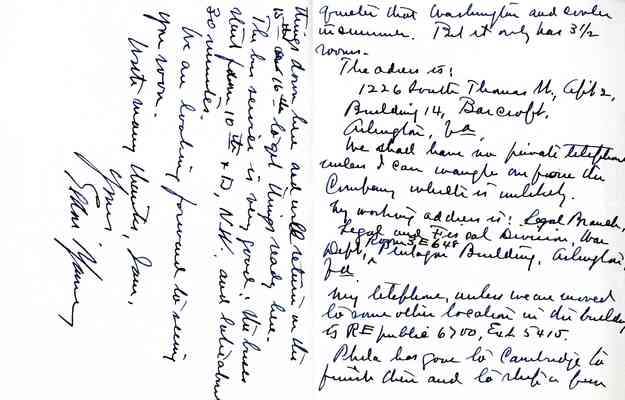 quieter that Washington and cooler
in summer. But it only has 3½
rooms.
The adress is:
1226 South Thomas St, Apt 2,
Building 14, Barcroft,
Arlington, Va.
We shall have no private telephone
unless I can wangle one from the
Company which is unlikely.
My working address is: Legal Branch,
Legal and Fiscal Division, War
Room 3 E 648
Dept, Pentagon Building, Arlington,
Va
My telephone, unless we are moved
to some other location in the building
is REpublic 6700, Ext 5415.
Phila has gone to Cambridge to
finish there and to ship a few
things down here and will return on the
15th or 16th to get things ready here.
The bus service is very good; the buses
start from 10th & D, N.W. and take about
30 minutes.
We are looking forward to seeing
you soon.
With many thanks, I am,
Yours